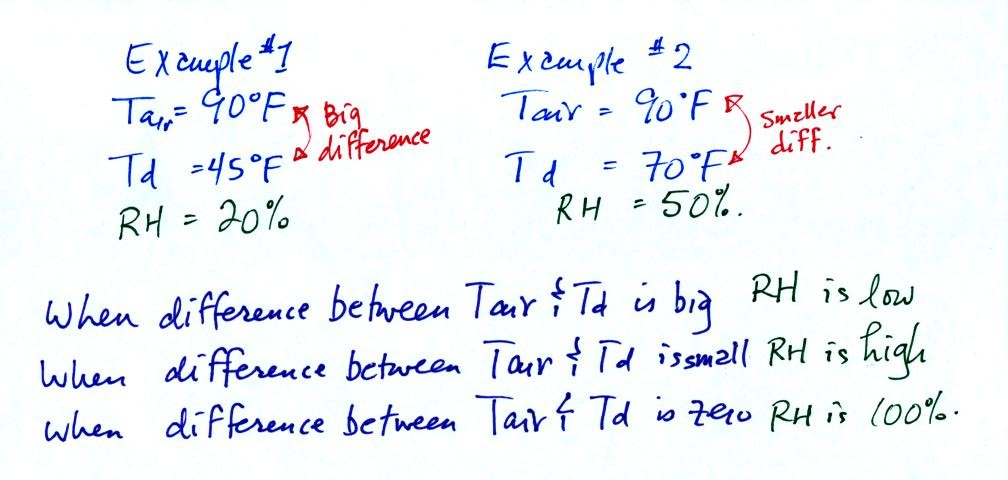 Example #1
Tair = 90°F
Big difference
Td = 45°F
RH = 20%
Example #2
Tair = 90°F
Smaller diff.
Td = 70°F
RH = 50%.
When difference between Tair & Td is big RH is low
When difference between Tair & Td is small RH is high
When difference between Tair & Td is zero RH is 100%.